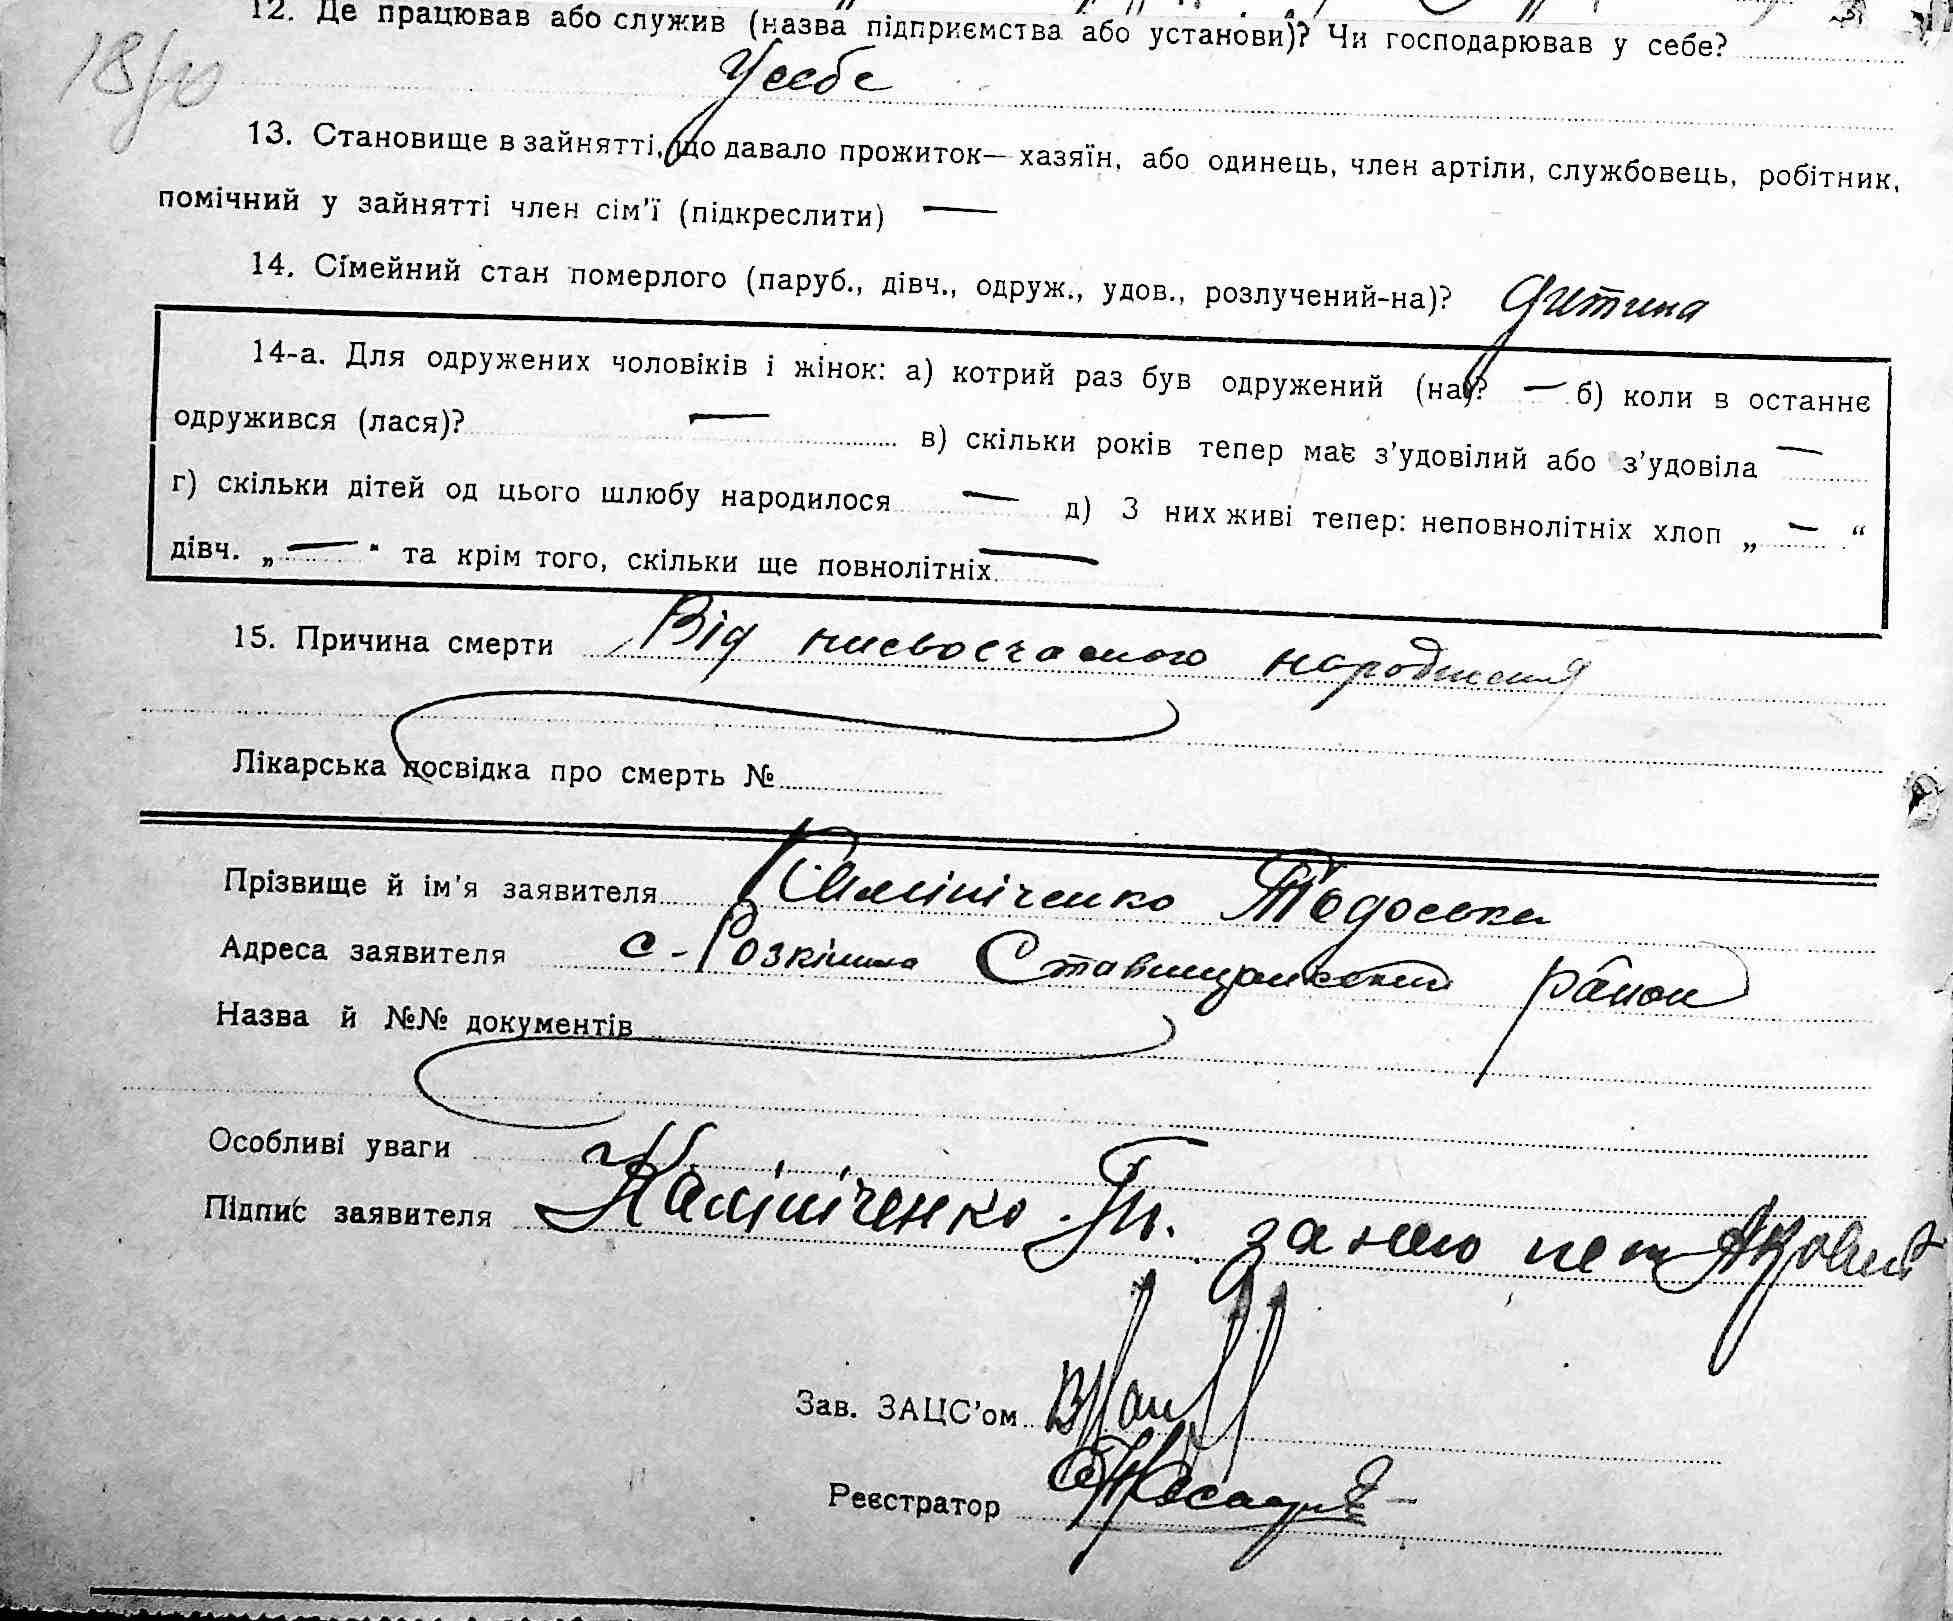 12. Де працював або служив (назва підприємства або установи)? Чи господарював у себе?
У себе
13. Становище в зайнятті, що давало прожиток— хазяїн, або одинець, член артіли, службовець, робітник,
помічний у зайнятті член сім'ї (підкреслити) —
14. Сімейний стан померлого (паруб., дівч., одруж., удов., розлучений-на)? дитина
14-а. Для одружених чоловіків і жінок: а) котрий раз був одружений (на)? — б) коли в останнє
одружився (лася)? — в) скільки років тепер має з'удовілий або з'удовіла —
г) скільки дітей од цього шлюбу народилося — д) З них живі тепер: неповнолітніх хлоп „ — “
дівч. „ — “ та крім того, скільки ще повнолітніх —
15. Причина смерти Від нисвосчасного народження
Лікарська посвідка про смерть №
Прізвище й ім'я заявителя Калініченко Тодоська
Адреса заявителя с-Розкішна Ставищанський район
Назва й №№ документів
Особливі уваги
Підпис заявителя Калініченко Т. за нею
Зав. ЗАЦС'ом
Реєстратор